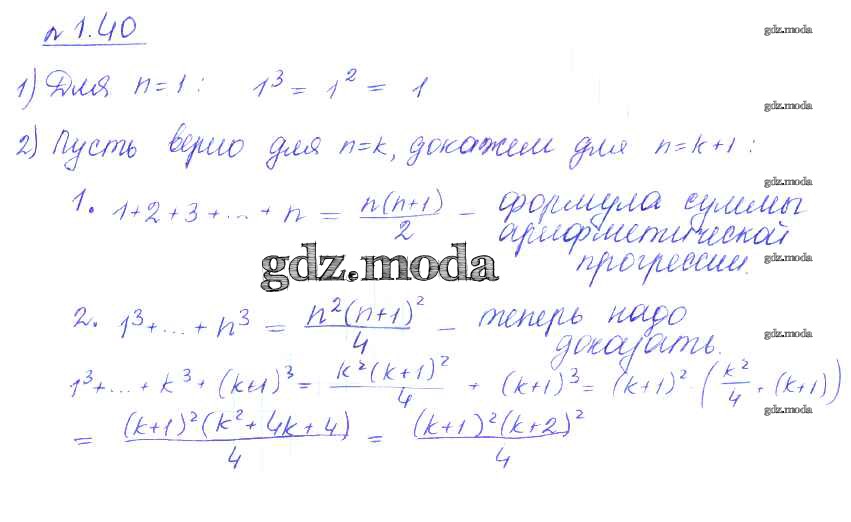 n 1.40
gdz.moda
1) Для n=1: 1³ = 1² = 1
gdz.moda
2) Пусть верно для n=k, докажем для n=k+1:
gdz.moda
1. 1+2+3+...+n = n(n+1)/2 – формула суммы
арифметической
прогрессии.
gdz.moda
gdz.moda
2. 1³+...+n³ = n²(n+1)²/4 – теперь надо
доказать.
gdz.moda
1³+...+k³+(k+1)³ = k²(k+1)²/4 + (k+1)³ = (k+1)²·(k²/4+(k+1))
gdz.moda
= (k+1)²(k²+4k+4)/4 = (k+1)²(k+2)²/4